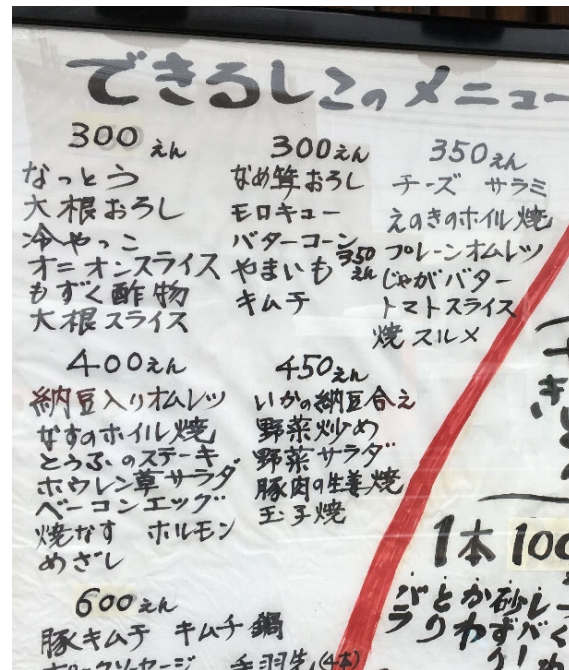 できるしこのメニュー
300えん
なっとう
大根おろし
冷やっこ
オニオンスライス
もずく酢物
大根スライス
300えん
なめ茸おろし
モロキュー
バターコーン
やまいも 350えん
キムチ
350えん
チーズ サラミ
えのきのホイル焼
プレーンオムレツ
じゃがバター
トマトスライス
焼スルメ
400えん
納豆入りオムレツ
なすのホイル焼
とうふのステーキ
ホウレン草サラダ
ベーコンエッグ
焼なす ホルモン
めざし
450えん
いかの納豆合え
野菜炒め
野菜サラダ
豚肉の生姜焼
玉子焼
600えん
豚キムチ キムチ鍋
ポークソーセージ 手羽先(4本)
1本 100
レバ
砂ずり
かわ
とり
バラ